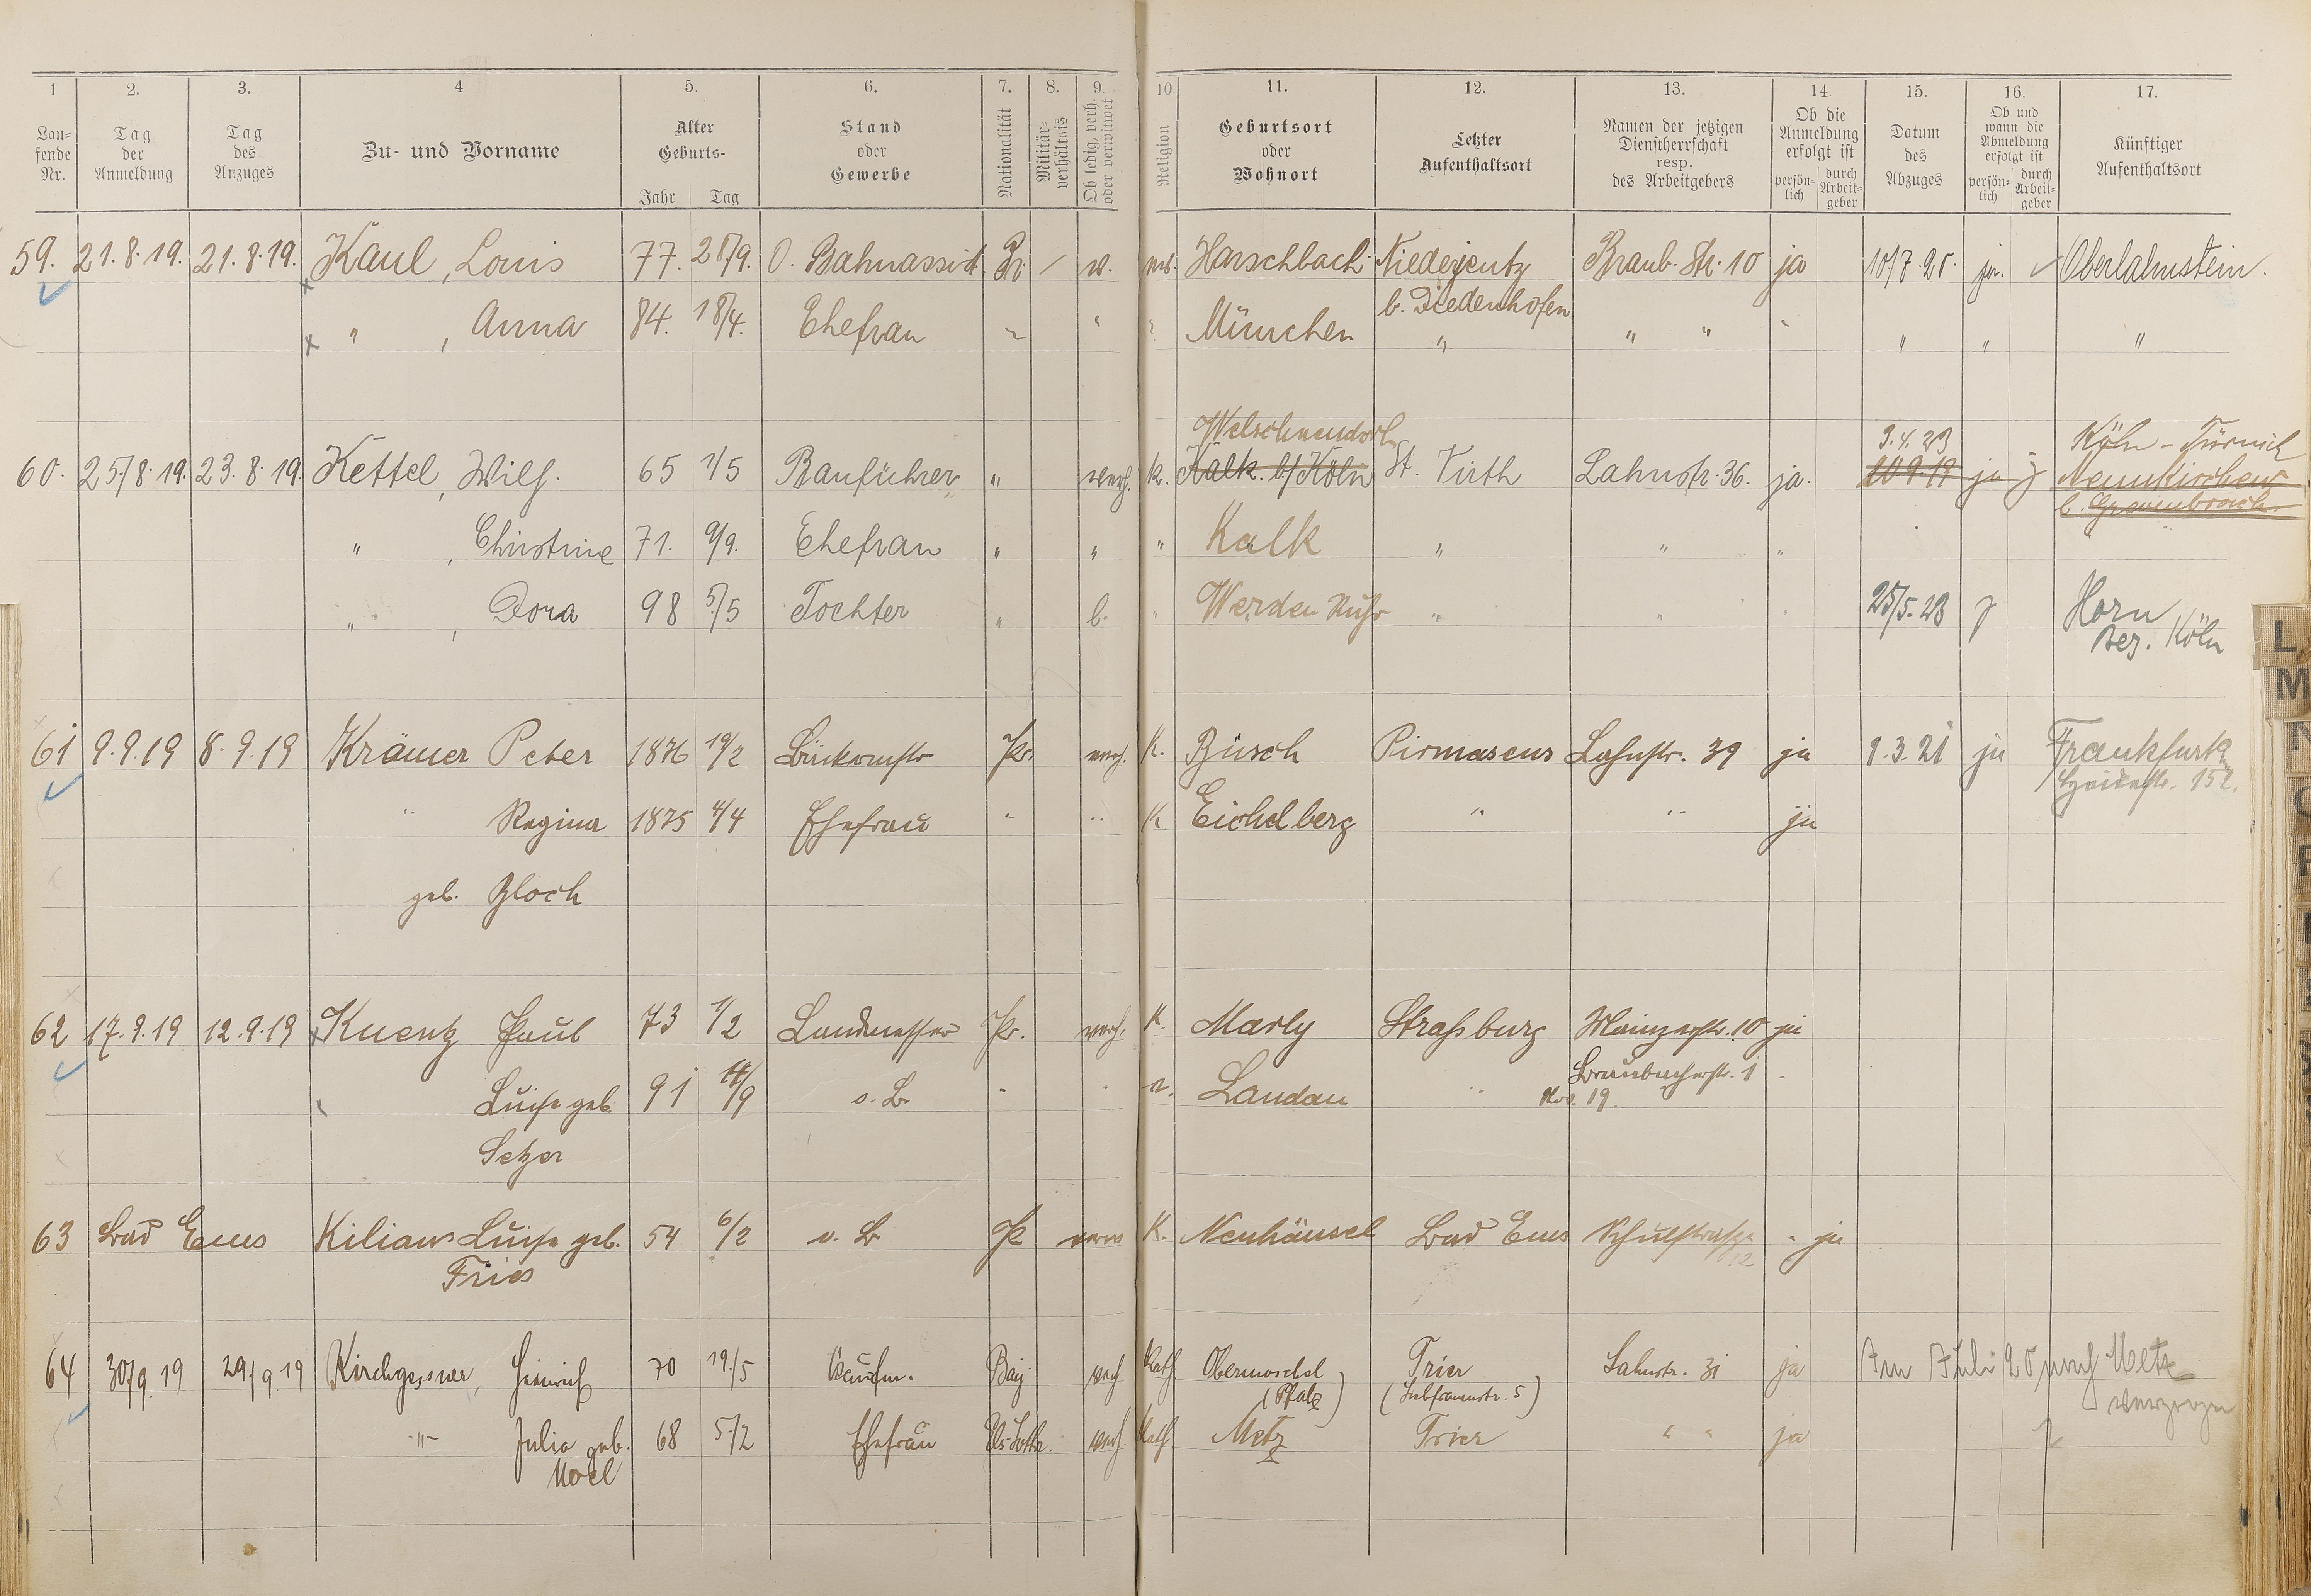 1 2. 3. 4 5. 6. 7. 8. 9. 10. 11. 12. 13. 14. 15. 16. 17.
Lau-
fende
Nr.
Tag
der
Anmeldung
Tag
des
Anzuges
Zu- und Vorname
Alter
Geburts-
Jahr Tag
Stand
oder
Gewerbe
Nationalität
Militär-
verhältnis
Ob ledig, verh.
oder verwitwet
Religion
Geburtsort
oder
Wohnort
Letzter
Aufenthaltsort
Namen der jetzigen
Dienstherrschaft
resp.
des Arbeitgebers
Ob die
Anmeldung
erfolgt ist
persön-
lich
durch
Arbeit-
geber
Datum
des
Abzuges
Ob und
wann die
Abmeldung
erfolgt ist
persön-
lich
durch
Arbeit-
geber
Künftiger
Aufenthaltsort
59. 21.8.19. 21.8.19. Kaul, Louis 77. 28/9. O. Bahnassist. Pr. / v. Harschbach Niederjeutz Braub. Str. 10 ja 10/7.20. ja. Oberlahnstein.
b. Diedenhofen
" , Anna 84. 18/4. Ehefrau " " " München " " " " " " "
Welschneudorf 3.4.23 Köln-Türnich
60. 25/8.19. 23.8.19. Kettel, Wilh. 65 1/5 Bauführer " verh. k. Kalk. b/Köln St. Virth Lahnstr. 36. ja. 10 9 19 ja Neunkirchen
b. Grevenbroich.
" , Christine 71. 9/9. Ehefrau " " " Kalk " " "
" , Dora 98 5/5 Tochter " l. " Werden Ruhr " " " 25/5.23 j Horn
Bez. Köln
61 9.9.19 8.9.19 Krämer Peter 1876 19/2 Pr. verh. K. Büsch Pirmasens Lahnstr. 39 ja 1.3.21 ja Frankfurt
152.
" Regina 1875 4/4 Ehefrau " " K. Eichelberg " " ja
geb. Bloch
62 17.9.19 12.9.19 Kuentz Paul 73 1/2 Landmesser Pr. verh. K. Marly Straßburg Mainzerstr. 10 ja
" Luise geb. 91 14/9 o. B. " " Landau " Braubacherstr. 1 "
Nov. 19.
Setzer
63 Bad Ems Kilian Luise geb. 54 6/2 o. B. K. Neuhäusel Bad Ems Schulstraße " ja
12
Fries
64 30/9.19 29/9.19 Kirchgessner, Heinrich 70 19./5 Kaufm. Bay verh Kath. Obermoschel Trier Lahnstr. 31 ja Im Juli 20 nach Metz
(Pfalz) (Liebfrauenstr. 5) verzogen
-"- Julia geb. 68 5./2 Ehefrau Els-Lothr. verh Kath. Metz Trier " " ja
Noel
L
M
N